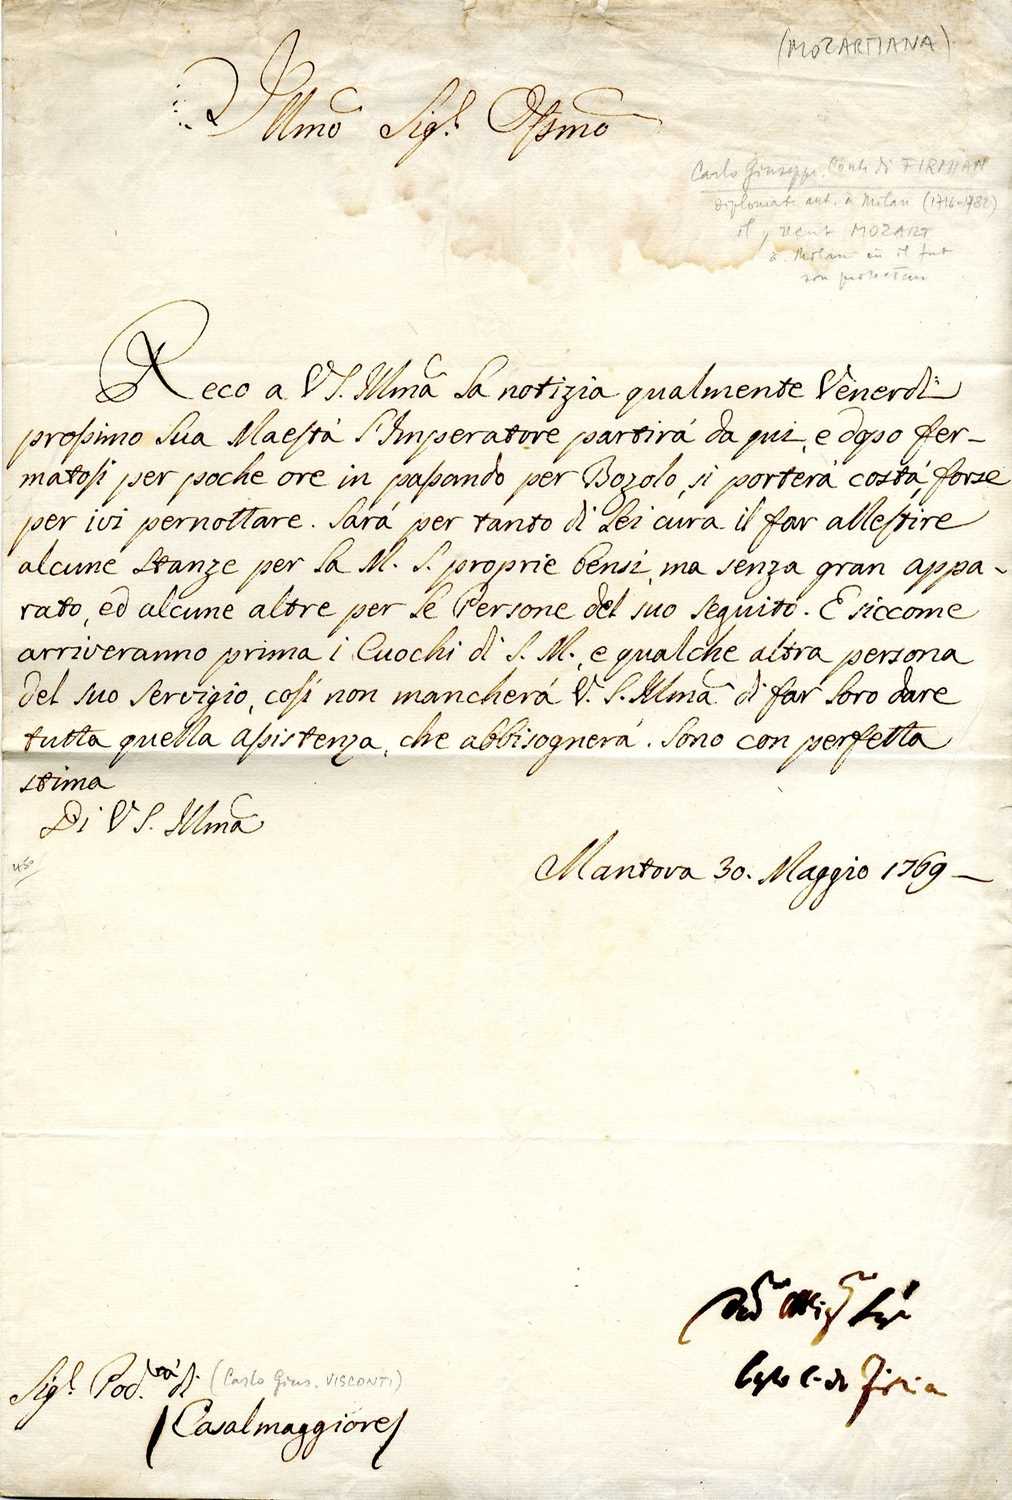 (MOZARTIANA)
Illmo Sigr. Ossmo
Carlo Giuseppe Conte di FIRMIAN
diplomate aut. à Milan (1716-1782)
il reçut MOZART
à Milan où il fut
son protecteur
Reco a V S. Illma la notizia qualmente Venerdì
prossimo Sua Maestà l'Imperatore partirà da qui, e dopo fer-
matosi per poche ore in passando per Bozolo, si porterà costà, forse
per ivi pernottare. Sarà per tanto di Lei cura il far allestire
alcune stanze per la M. S. proprie bensi, ma senza gran appa-
rato, ed alcune altre per le Persone del suo seguito. E siccome
arriveranno prima i Cuochi di S. M., e qualche altra persona
del suo servigio, così non mancherà V. S. Illma di far loro dare
tutta quella assistenza, che abbisognerà. Sono con perfetta
stima
Di V S. Illma
Mantova 30. Maggio 1769
Carlo C. di Firmian
Sigr. Pod.stà di (Carlo Gius. VISCONTI)
Casalmaggiore